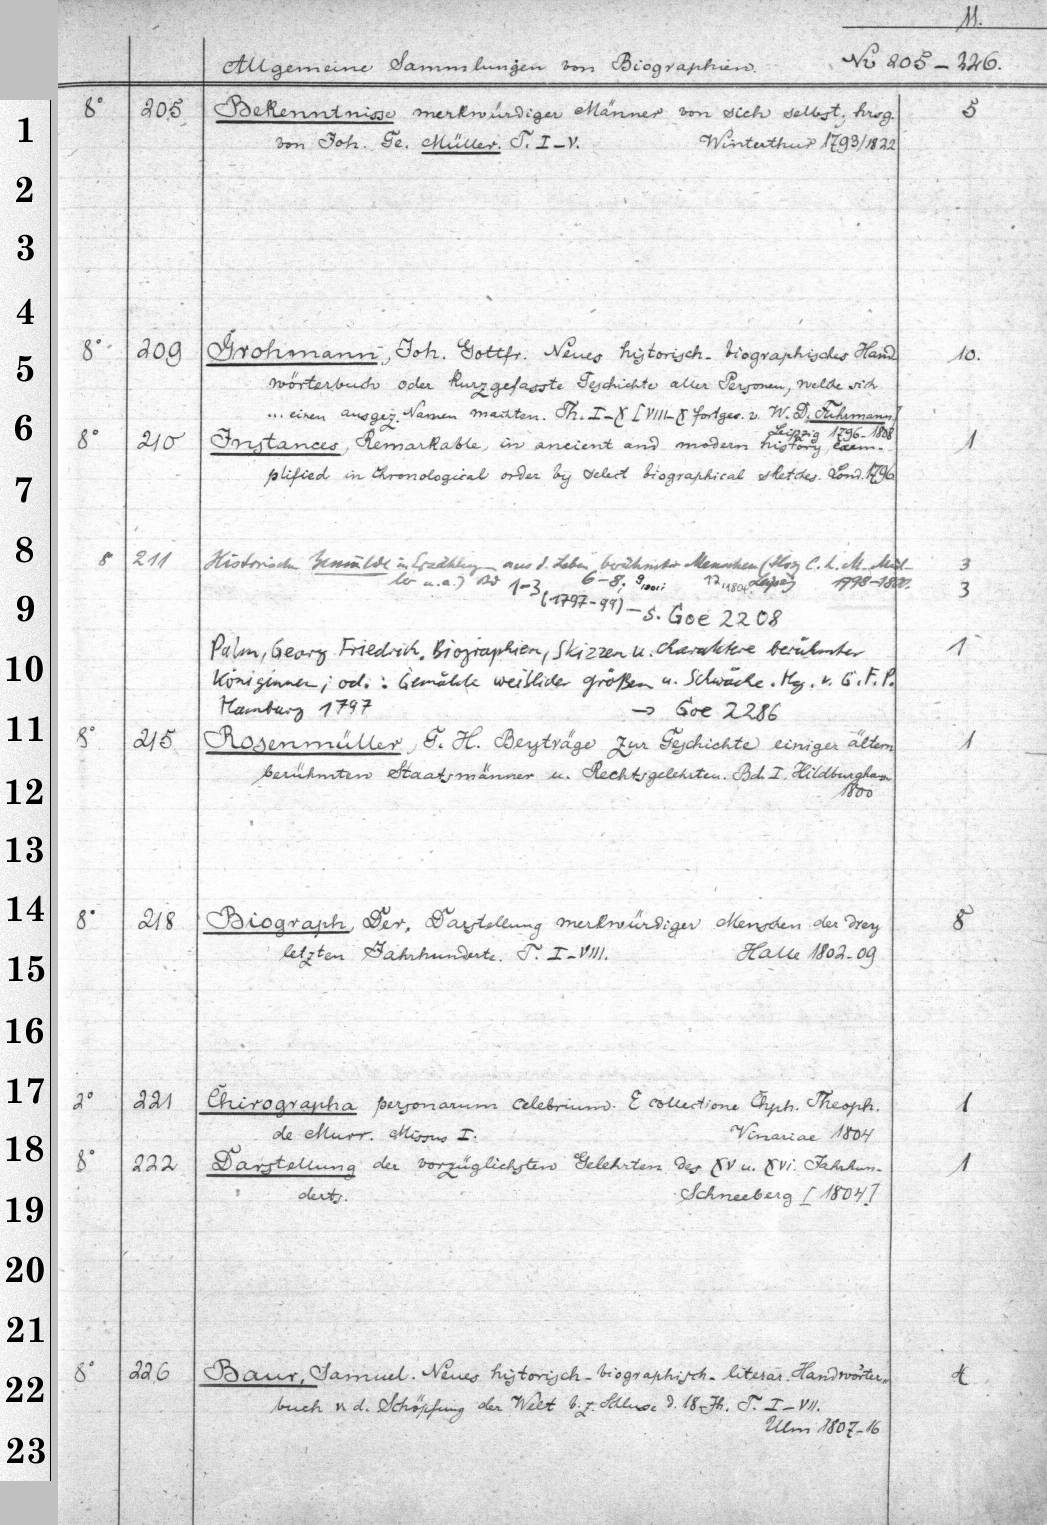 11.
Allgemeine Sammlungen von Biographien. No 205-226.
8° 205 Bekenntnisse merkwürdiger Männer von sich selbst, hrsg. 5
1 von Joh. Ge. Müller. T. I-V. Winterthur 1793/1822
2
3
4
8° 209 Grohmann, Joh. Gottfr. Neues historisch-biographisches Hand 10.
5 wörterbuch oder kurzgefasste Geschichte aller Personen, welche sich
... einen ausgez. Namen machten. Th. I-X [VIII-X fortges. v. W. D. Fuhrmann]
6 Leipzig 1796-1808
8° 210 Instances, Remarkable, in ancient and modern history, exem- 1
7 plified in chronological order by select biographical sketches. Lond. 1796
8 8 211 Historische Gemälde in Erzählungen aus d. Leben berühmter Menschen (Hsg C. L. M. Mül- 3
ler u. a.) Bd 1-3 6-8, 9 1801 12 1804. Leipzig 1798-18 3
9 (1797-99) - s. Goe 2208
Palm, Georg Friedrich. Biographien, Skizzen u. Charaktere berühmter 1
10 Königinnen; od.: Gemälde weiblicher Größen u. Schwäche. Hg. v. G. F. P.
Hamburg 1797 → Goe 2286
11 8° 215 Rosenmüller, G. H. Beyträge zur Geschichte einiger ältern 1
berühmten Staatsmänner u. Rechtsgelehrten. Bd. I. Hildburghaus
12 1800
13
14 8° 218 Biograph, Der, Darstellung merkwürdiger Menschen der drey 8
15 letzten Jahrhunderte. T. I-VIII. Halle 1802-09
16
17 2° 221 Chirographa personarum celebrium. E collectione Chph. Theoph. 1
de Murr. Missus I. Vinariae 1804
18 8° 222 Darstellung der vorzüglichsten Gelehrten des XV u. XVI. Jahrhun- 1
19 derts. Schneeberg [1804]
20
21
8° 226 Baur, Samuel. Neues historisch-biographisch-literar. Handwörter-
22 buch v. d. Schöpfung der Welt b. z. Schluse d. 18. Jh. T. I-VII.
Ulm 1807-16
23